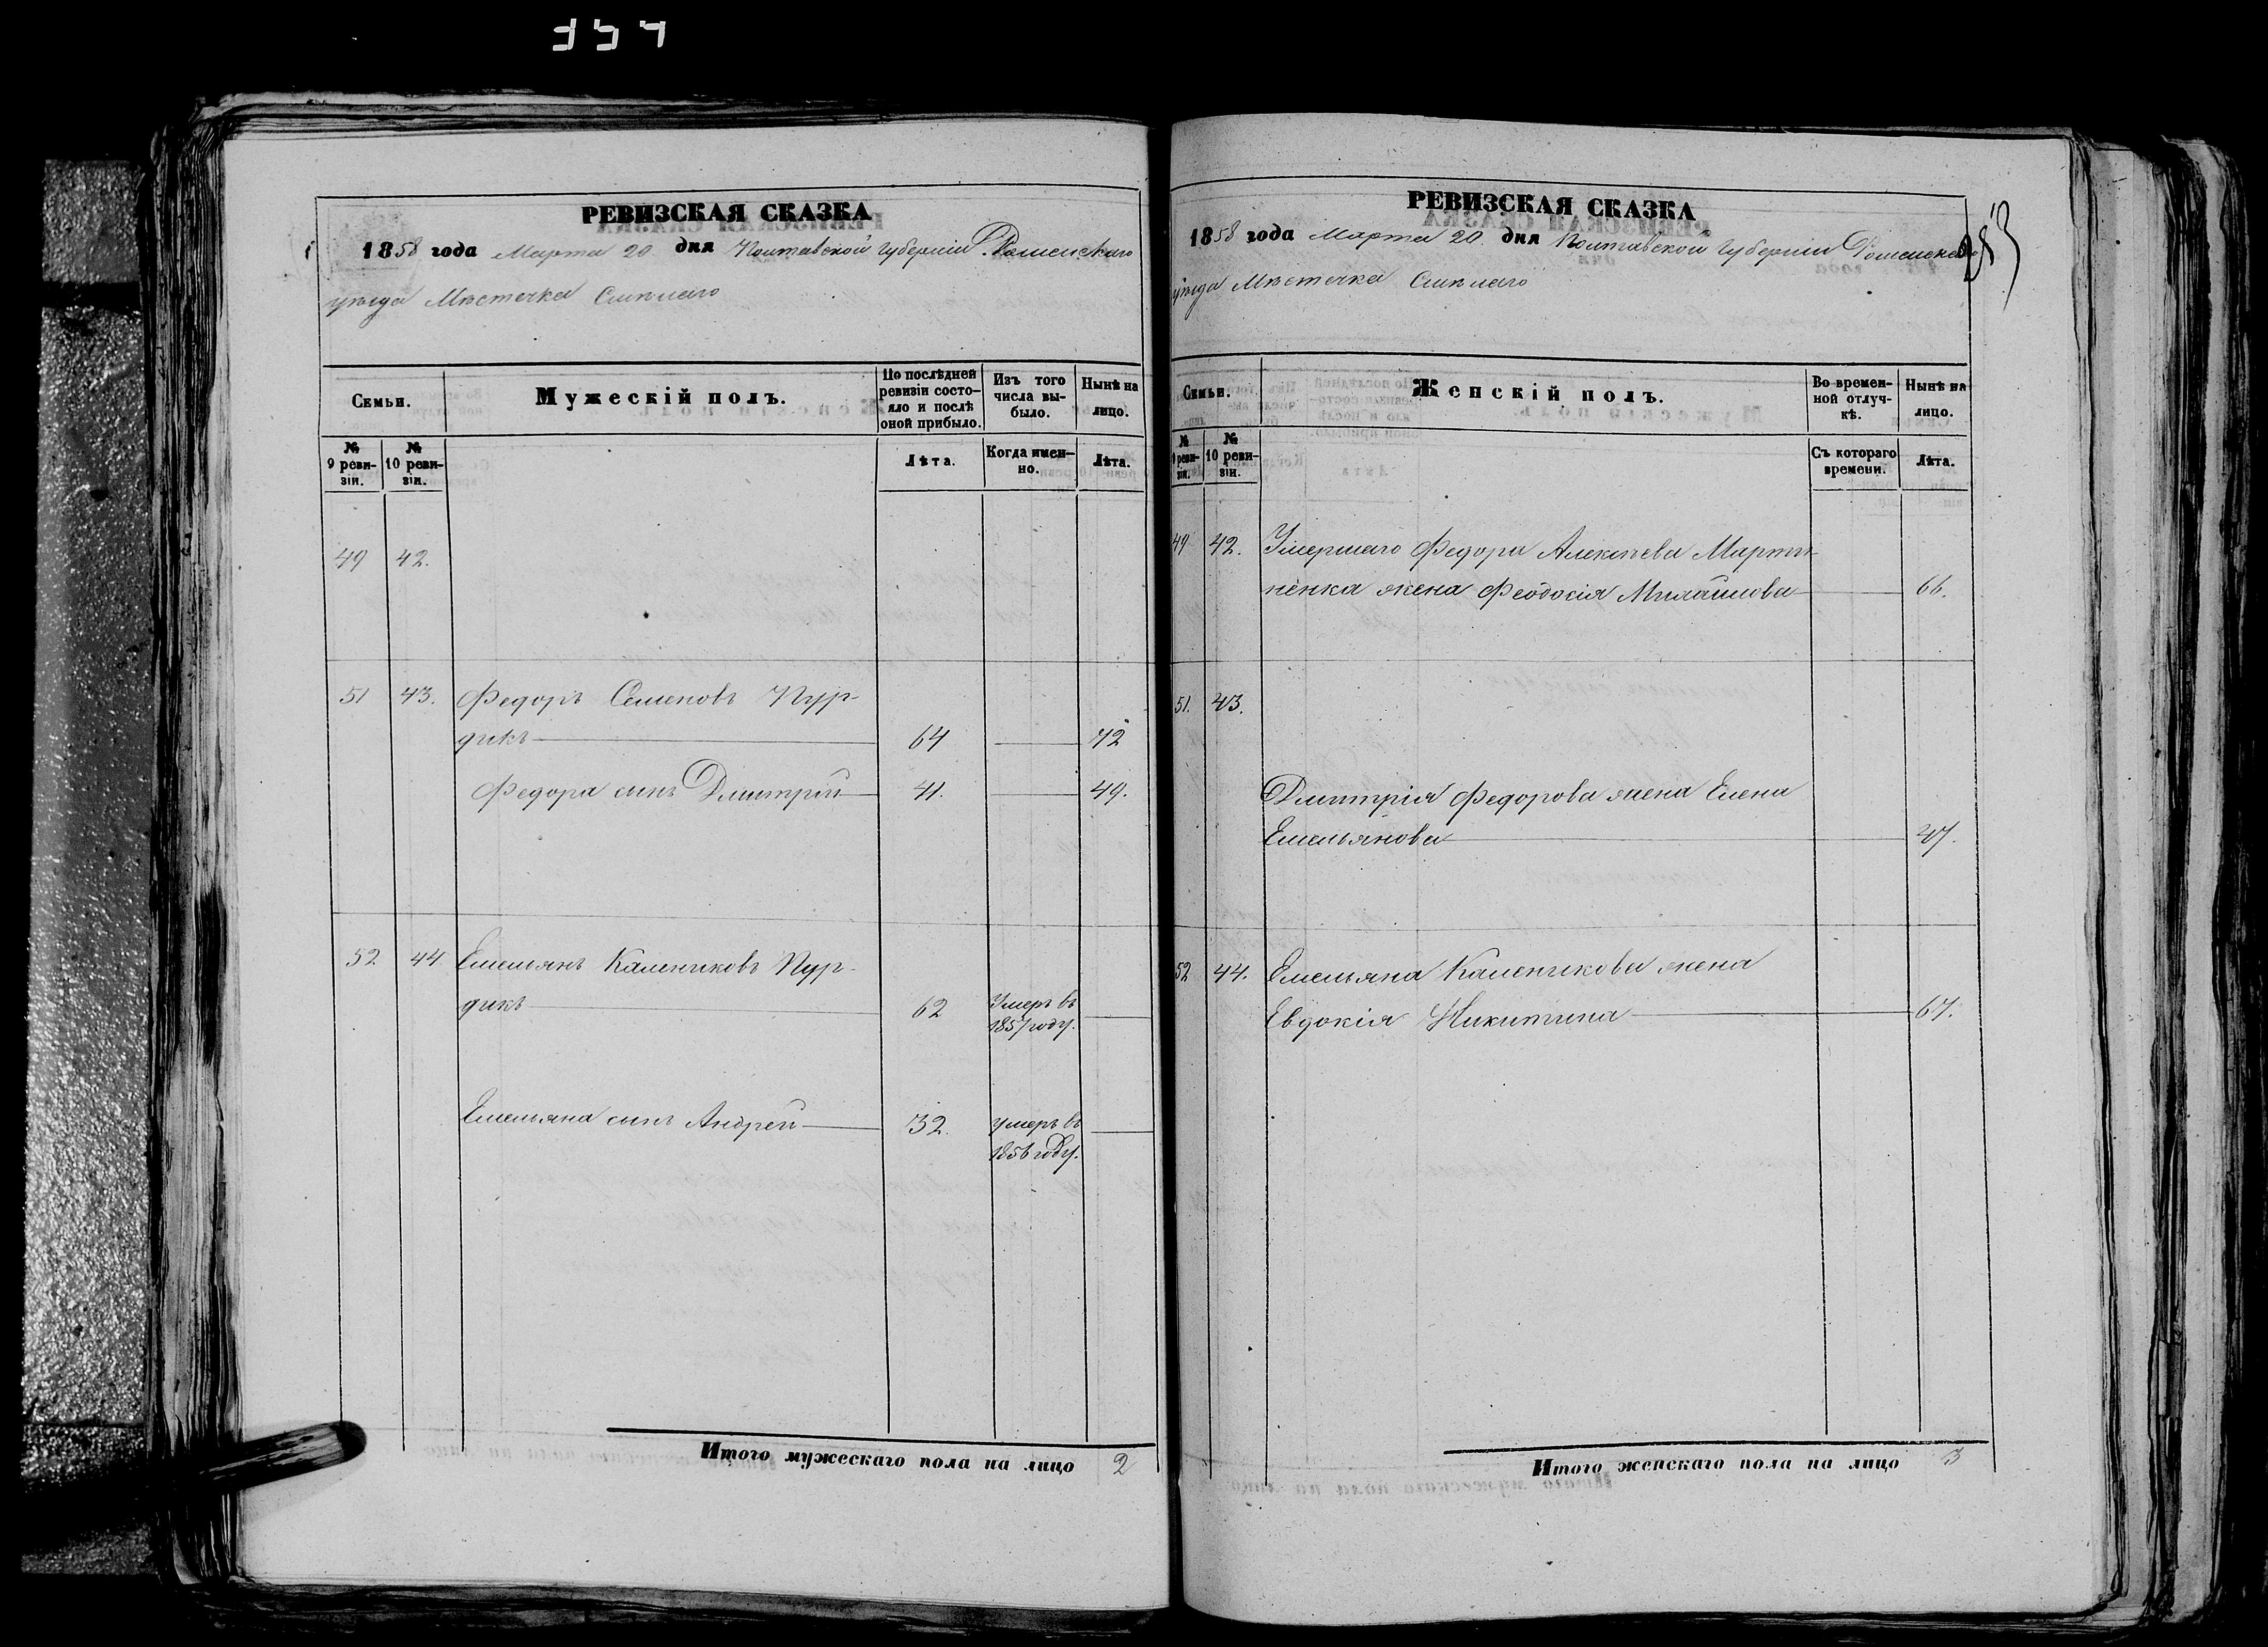 РЕВИЗСКАЯ СКАЗКА
1858 года Марта 20 дня Полтавской Губернии Роменскаго
уѣзда Мѣстечка Смѣлаго
Семьи.
Мужескій полъ.
По послѣдней
ревизіи состо-
яло и послѣ
оной прибыло.
Изъ того
числа вы-
было.
Нынѣ на
лицо.
№
9 реви-
зіи.
№
10 реви-
зіи.
Лѣта.
Когда имен-
но.
Лѣта.
49 42.
51 43. Федоръ Семеновъ Пур-
дикъ 64 72
Федора сынъ Дмитрій 41. 49.
52 44 Емельянъ Калениковъ Пур-
дикъ 62 Умеръ въ
1857 году.
Емельяна сынъ Андрей 32. умеръ въ
1856 году.
Итого мужескаго пола на лицо 2
РЕВИЗСКАЯ СКАЗКА
1858 года Марта 20. дня Полтавской Губернии Роменскаго
уѣзда Мѣстечка Смѣлаго
Семьи.
Женскій полъ.
Во времен-
ной отлуч-
кѣ.
Нынѣ на
лицо.
№
9 реви-
зіи.
№
10 реви-
зіи.
Съ котораго
времени.
Лѣта.
49 42. Умершаго Федора Алексѣева Марты-
ненка жена Феодосія Михайлова 66.
51. 43.
Дмитрія Федорова жена Елена
Емельянова 47.
52 44. Емельяна Каленикова жена
Евдокія Никитина 67.
Итого женскаго пола на лицо 3